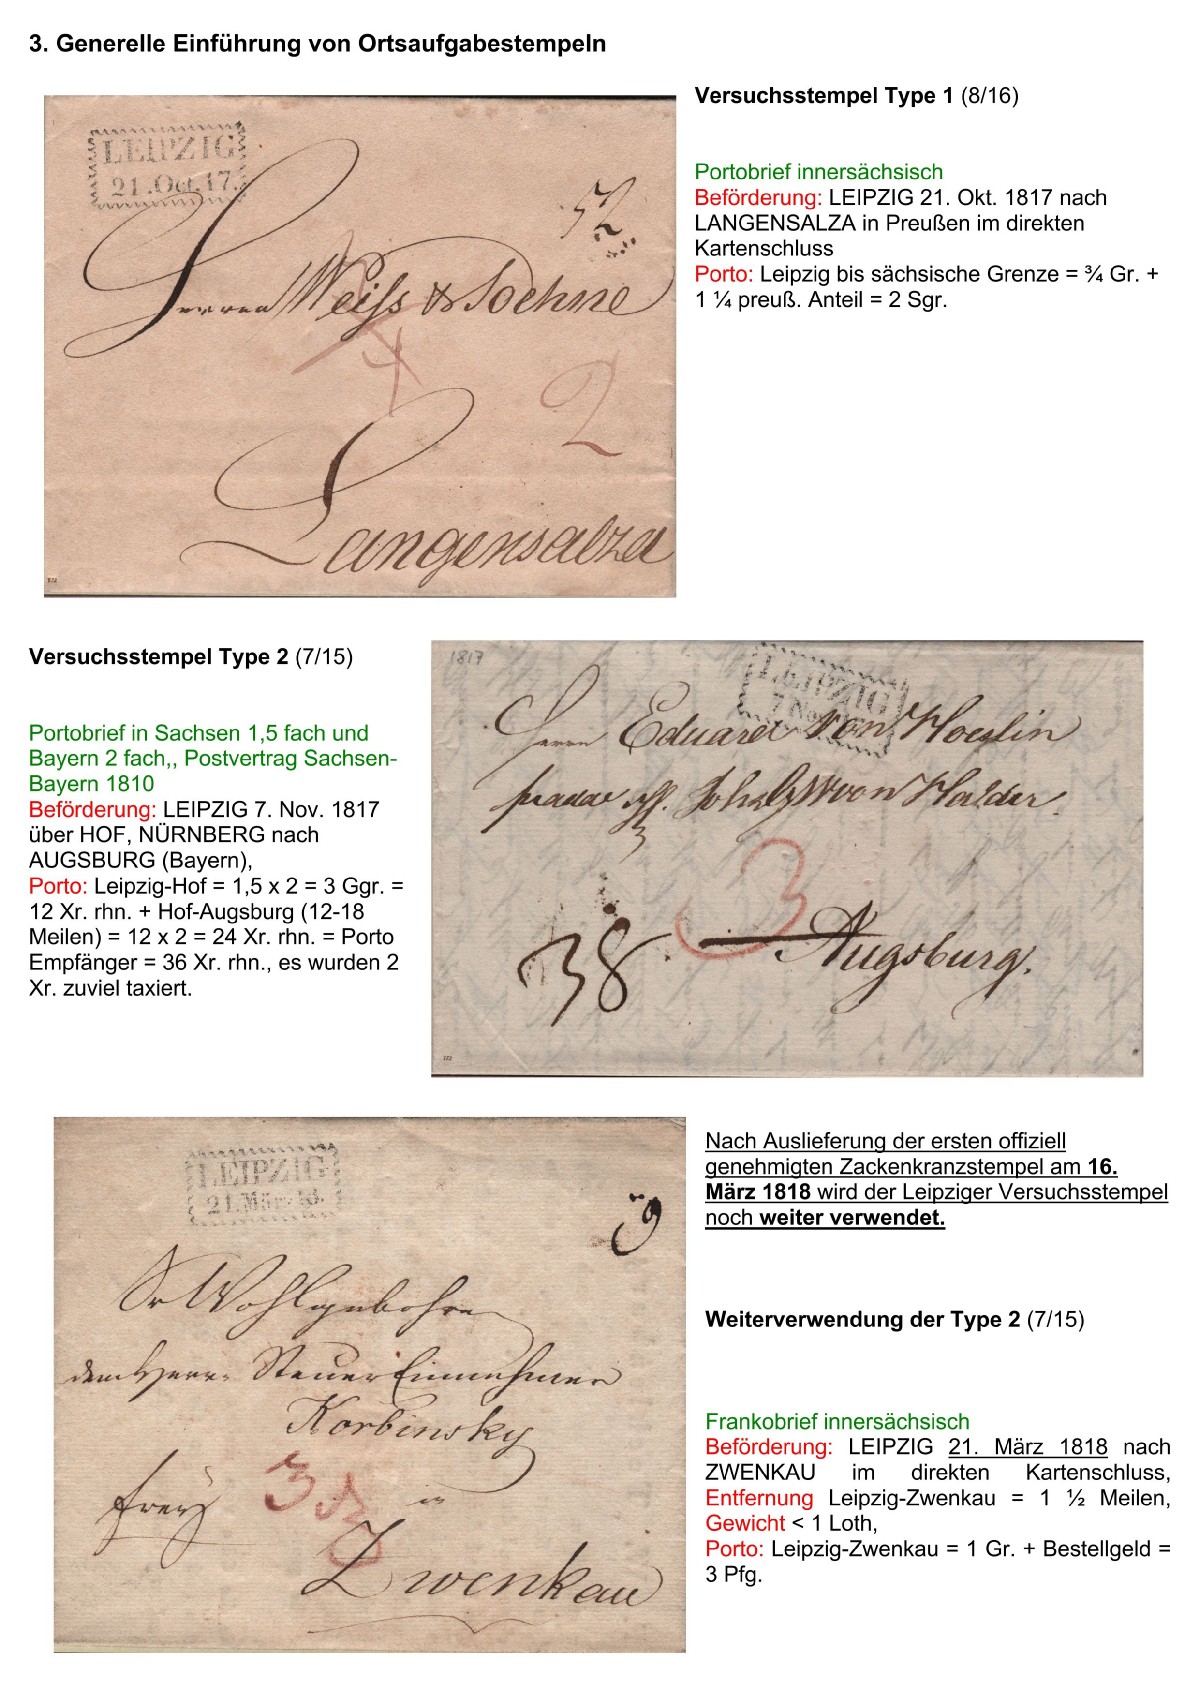 3. Generelle Einführung von Ortsaufgabestempeln
LEIPZIG
21.Oct.17.
52
Herren Weiss & Soehne
4
2
Langensalza
Versuchsstempel Type 1 (8/16)
Portobrief innersächsisch
Beförderung: LEIPZIG 21. Okt. 1817 nach
LANGENSALZA in Preußen im direkten
Kartenschluss
Porto: Leipzig bis sächsische Grenze = ¾ Gr. +
1 ¼ preuß. Anteil = 2 Sgr.
Versuchsstempel Type 2 (7/15)
Portobrief in Sachsen 1,5 fach und
Bayern 2 fach,, Postvertrag Sachsen-
Bayern 1810
Beförderung: LEIPZIG 7. Nov. 1817
über HOF, NÜRNBERG nach
AUGSBURG (Bayern),
Porto: Leipzig-Hof = 1,5 x 2 = 3 Ggr. =
12 Xr. rhn. + Hof-Augsburg (12-18
Meilen) = 12 x 2 = 24 Xr. rhn. = Porto
Empfänger = 36 Xr. rhn., es wurden 2
Xr. zuviel taxiert.
1817
LEIPZIG
7 Nov
Herrn Eduard von Hoeslin
von Halder.
3
38
Augsburg.
LEIPZIG
21.März 18.
9
Sr Wohlgebohren
dem Herrn Steuer Einnehmer
Korbinsky
frey
3
in
Zwenkau
Nach Auslieferung der ersten offiziell
genehmigten Zackenkranzstempel am 16.
März 1818 wird der Leipziger Versuchsstempel
noch weiter verwendet.
Weiterverwendung der Type 2 (7/15)
Frankobrief innersächsisch
Beförderung: LEIPZIG 21. März 1818 nach
ZWENKAU im direkten Kartenschluss,
Entfernung Leipzig-Zwenkau = 1 ½ Meilen,
Gewicht < 1 Loth,
Porto: Leipzig-Zwenkau = 1 Gr. + Bestellgeld =
3 Pfg.